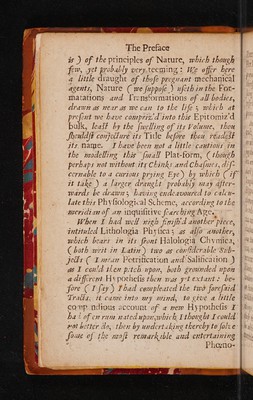 The Preface
is ) of the principles of Nature, which though
few, yet probably very teeming : We offer here
a little draught of those pregnant mechanical
agents, Nature ( we suppose ) useth in the For-
matations and Transformations of all bodies,
drawn as near as we can to the life ; which at
present we have compriz'd into this Epitomiz'd
bulk, least by the swelling of its Volume, thou
shouldst conjecture its Title before thou readest
its name. I have been not a little cautious in
the modelling this small Plat-form, ( though
perhaps not without its Chinks and Chasms, dis-
cernable to a curious prying Eye ) by which ( if
it take ) a larger draught probably may after-
wards be drawn ; having endeavoured to calcu-
late this Physiological Scheme, according to the
meridian of an inquisitive searching Age.
When I had well nigh finisht another piece,
intituled Lithologia Physica ; as also another,
which bears in its front Halologia Chymica,
( both writ in Latin ) two as considerable Sub-
jects ( I mean Petrification and Salification )
as I could then pitch upon, both grounded upon
a different Hypothesis then was yet extant : be-
fore ( I say ) I had compleated the two foresaid
Tracts, it came into my mind, to give a little
compendious account of a new Hypothesis I
had often ruminated upon; which I thought I could
not better do, then by undertaking thereby to solve
some of the most remarkible and entertaining
Phœno-